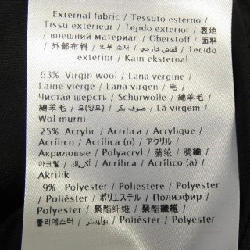 External fabric / Tessuto esterno /
Tissu extérieur / Tejido exterior / 表地
/ внешний материал / Oberstoff / 面料
/ 外部布料 / / Tecido
exterior / Kain eksternal
63% Virgin wool / Lana vergine
/ Laine vierge / Lana virgen / 毛 /
Чистая шерсть / Schurwolle / 綿羊毛
/ 綿羊毛 / / Lã virgem /
Wol murni
25% Acrylic / Acrilica / Acrylique
/ Acrílico / Acrilico (a) / アクリル /
Акриловые / Polyacryl / /
/ Acrilica / Acrílico (a) /
Akrilik
9% Polyester / Poliestere / Polyester
/ Poliéster / ポリエステル / Полиэфир /
Polyester / 聚酯纖維 / 聚酯纖維 /
폴리에스터 / Poliéster / Poliester